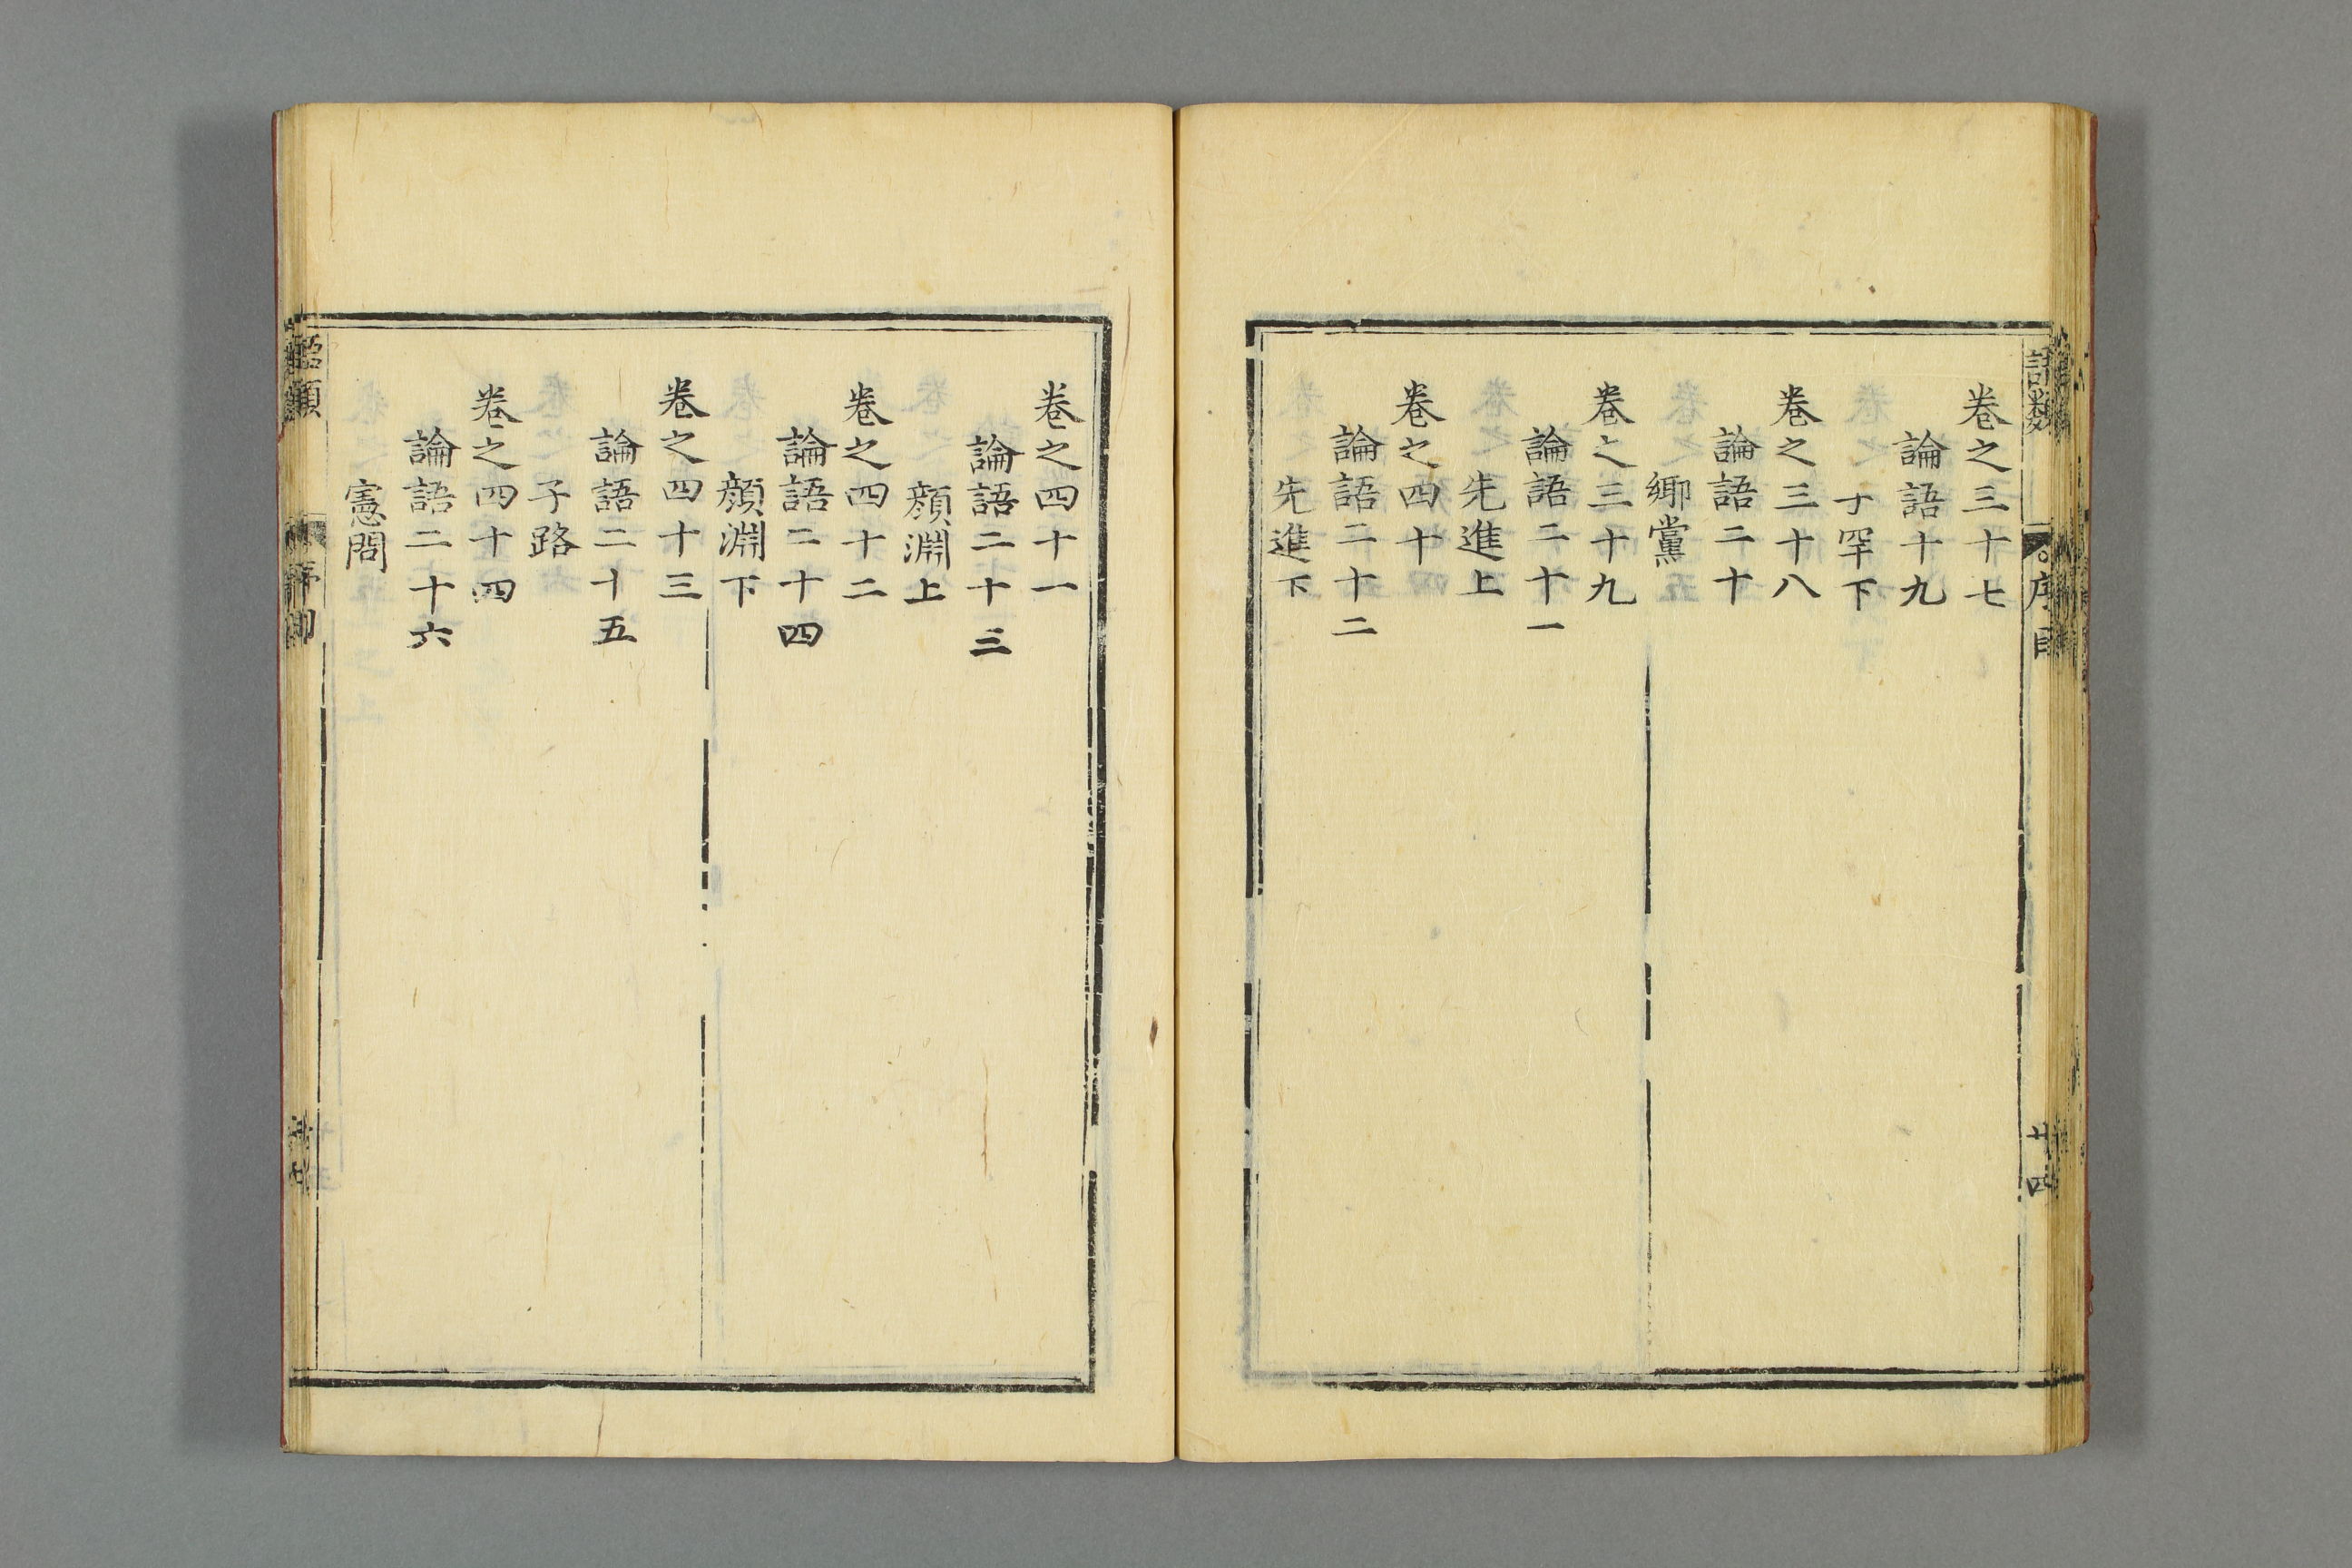 卷之三十七
論語十九
子罕下
卷之三十八
論語二十
鄉黨
卷之三十九
論語二十一
先進上
卷之四十
論語二十二
先進下
序目
廿四
卷之四十一
論語二十三
顏淵上
卷之四十二
論語二十四
顏淵下
卷之四十三
論語二十五
子路
卷之四十四
論語二十六
憲問